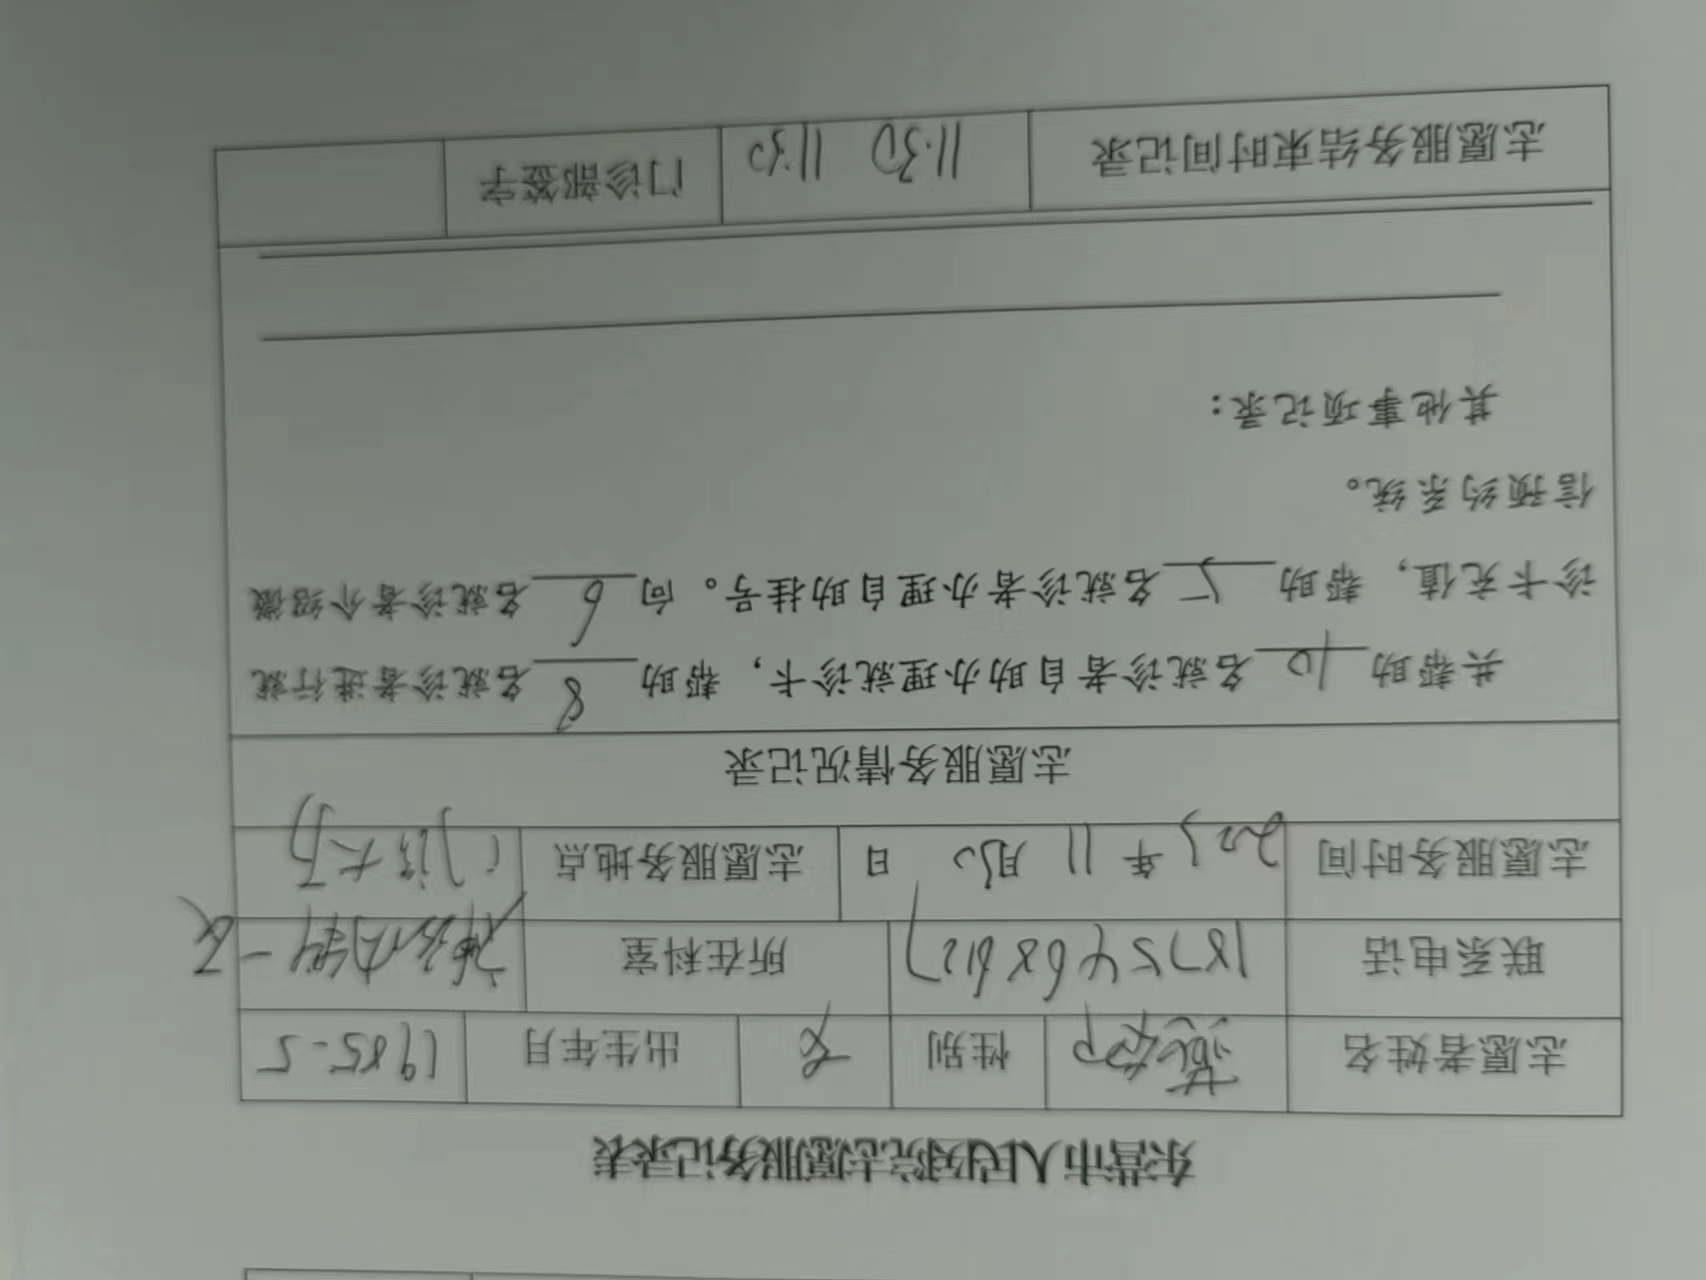 东营市人民医院志愿服务记录表
志愿者姓名 性别 女 出生年月 1985-5
联系电话 18754686127 所在科室 神经内科一区
志愿服务时间 2023年 11 月30 日 志愿服务地点 门诊大厅
志愿服务情况记录
共帮助 10 名就诊者自助办理就诊卡，帮助 8 名就诊者进行就
诊卡充值，帮助 5 名就诊者办理自助挂号。向 6 名就诊者介绍微
信预约系统。
其他事项记录：
志愿服务结束时间记录 11:30 11:30 门诊部签字